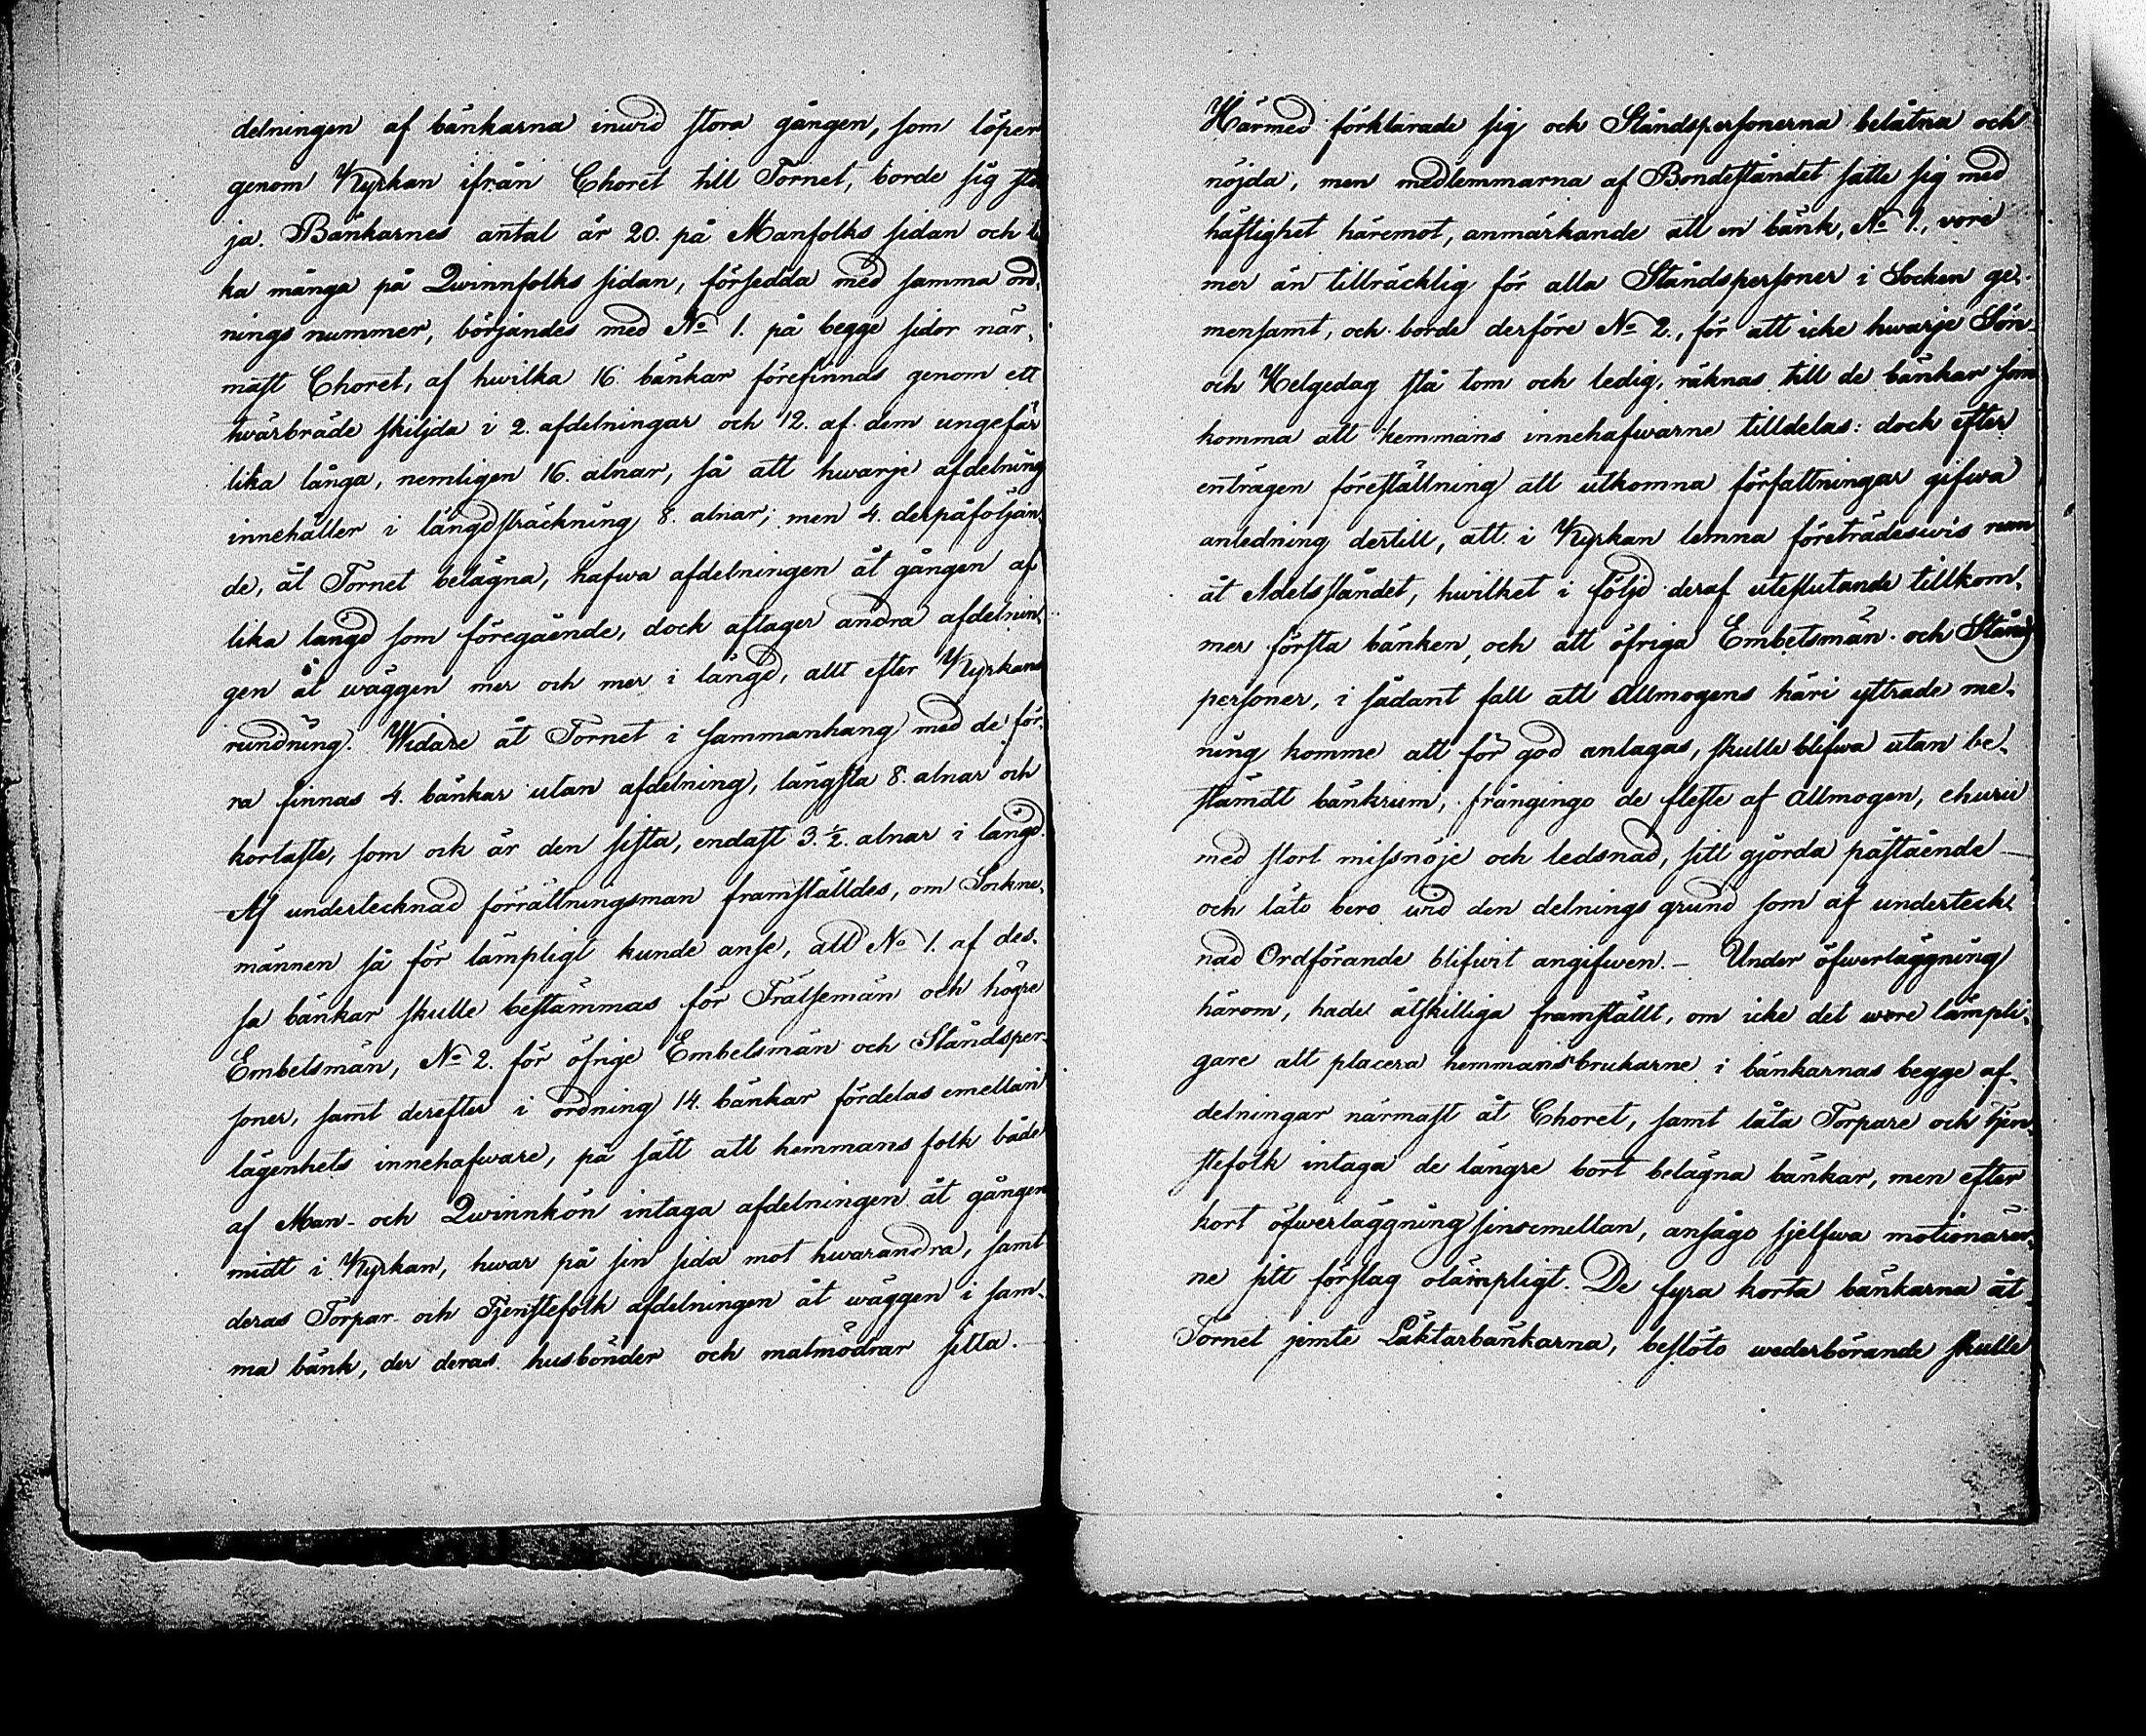 delningen af bänkarna inwid stora gången, som löper
genom Kyrkan ifrån Choret till Tornet, borde sig
ja. Bänkarnes antal är 20. på Manfolks sidan och
ka många på Qwinnfolks sidan, försedda med samma ord¬
nings nummer, börjandes med No 1. på begge sidor när¬
mast Choret, af hwilka 16. bänkar förefinnas genom ett
twärbräde skiljda i 2. afdelningar och 12. af dem ungefär
lika långa, nemligen 16. alnar, så att hwarje afdelning
innehåller i längdsträckning 8. alnar; men 4. derpåföljan¬
de, åt Tornet belägna, hafwa afdelningen åt gången af
lika längd som föregående, dock aftager andra afdelnin¬
gen åt wäggen mer och mer i längd, allt efter Kyrkans
rundning. Widare åt Tornet i sammanhang med de för¬
ra finnas 4. bänkar utan afdelning, längsta 8. alnar och
kortaste, som ock är den sista, endast 3. ½. alnar i längd.
Af undertecknad förrättningsman framställdes, om Sockne¬
männen så för lämpligt kunde anse, att No 1. af des¬
sa bänkar skulle bestämmas för Frälsemän och högre
Embetsmän, No 2. för öfrige Embetsmän och Ståndsper¬
soner, samt derefter i ordning 14. bänkar fördelas emellan
lägenhets innehafware, på sätt att hemmans folk både
af Man- och Qwinnkön intaga afdelningen åt gången
midt i Kyrkan, hwar på sin sida mot hwarandra, samt
deras Torpar- och Tjenstefolk afdelningen åt wäggen i sam¬
ma bänk, der deras husbönder och matmödrar sitta. —
Härmed förklarade sig och Ståndspersonerna belåtna och
nöjda, men medlemmarna af Bondeståndet satte sig med
häftighet häremot, anmärkande att en bänk, No 1., vore
mer än tillräcklig för alla Ståndspersoner i Socken ge¬
mensamt, och borde derföre No 2., för att icke hwarje Sön-
och Helgedag stå tom och ledig, räknas till de bänkar som
komma att hemmans innehafwarne tilldelas: dock efter
enträgen föreställning att utkomna författningar gifwa
anledning dertill, att i Kyrkan lemna företrädeswis rum
åt Adelsståndet, hwilket i följd deraf uteslutande tillkom¬
mer första bänken, och att öfriga Embetsmän och Stånds
personer, i sådant fall att Allmogens häri yttrade me¬
ning komme att för god antagas, skulle blifwa utan be¬
stämdt bänkrum, frångingo de fleste af Allmogen, ehuru
med stort missnöje och ledsnad, sitt gjorda påstående —
och läto bero wid den delnings grund som af underteck¬
nad Ordförande blifwit angifwen. — Under öfwerläggning
härom, hade åtskilliga framställt, om icke det wore lämpli¬
gare att placera hemmansbrukarne i bänkarnas begge af¬
delningar närmast åt Choret, samt låta Torpare och Tjen¬
stefolk intaga de längre bort belägna bänkar, men efter
kort öfwerläggning sinsemellan, ansågo sjelfwa motionärer¬
ne sitt förslag olämpligt. De fyra korta bänkarna åt
Tornet jemte Läktarbänkarna, beslöto wederbörande skulle